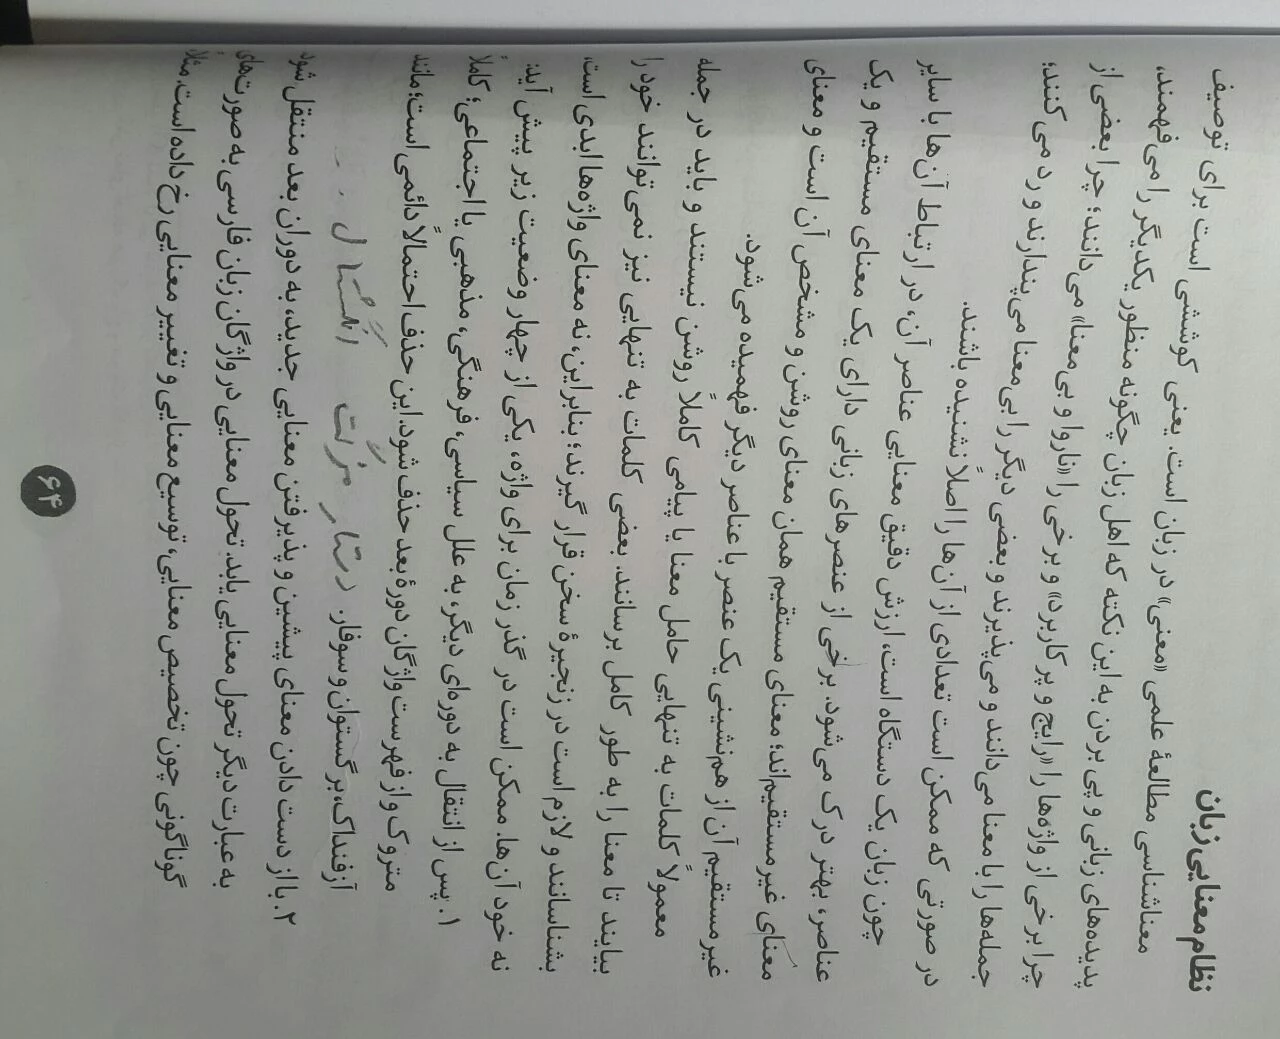 نظام معنایی زبان
معناشناسی مطالعهٔ علمی «معنی» در زبان است. یعنی کوششی است برای توصیف
پدیده‌های زبانی و پی بردن به این نکته که اهل زبان چگونه منظور یکدیگر را می‌فهمند،
چرا برخی از واژه‌ها را «رایج و پر کاربرد» و برخی را «ناروا و بی‌معنا» می‌دانند؛ چرا بعضی از
جمله‌ها را با معنا می‌دانند و می‌پذیرند و بعضی دیگر را بی‌معنا می‌پندارند و رد می‌کنند؛
در صورتی که ممکن است تعدادی از آن‌ها را اصلاً نشنیده باشند.
چون زبان یک دستگاه است، ارزش دقیق معنایی عناصر آن، در ارتباط آن‌ها با سایر
عناصر، بهتر درک می‌شود. برخی از عنصرهای زبانی دارای یک معنای مستقیم و یک
معنای غیر مستقیم‌اند؛ معنای مستقیم همان معنای روشن و مشخص آن است و معنای
غیر مستقیم آن از هم‌نشینی یک عنصر با عناصر دیگر فهمیده می‌شود.
معمولاً کلمات به تنهایی حامل معنا یا پیامی کاملاً روشن نیستند و باید در جمله
بیایند تا معنا را به طور کامل برسانند. بعضی کلمات به تنهایی نیز نمی‌توانند خود را
بشناسانند و لازم است در زنجیرهٔ سخن قرار گیرند؛ بنابراین، نه معنای واژه‌ها ابدی است،
نه خود آن‌ها. ممکن است در گذر زمان برای واژه، یکی از چهار وضعیت زیر پیش آید:
۱. پس از انتقال به دوره‌ای دیگر، به علل سیاسی، فرهنگی، مذهبی یا اجتماعی؛ کاملاً
متروک و از فهرست واژگان دورهٔ بعد حذف شود. این حذف احتمالاً دائمی است؛ مانند
آزفنداک، برگستوان و سوفار.
۲. با از دست دادن معنای پیشین و پذیرفتن معنایی جدید، به دوران بعد منتقل شود
به عبارت دیگر تحول معنایی یابد. تحول معنایی در واژگان زبان فارسی به صورت‌های
گوناگونی چون تخصیص معنایی، توسیع معنایی و تغییر معنایی رخ داده است. مثلاً
۶۴